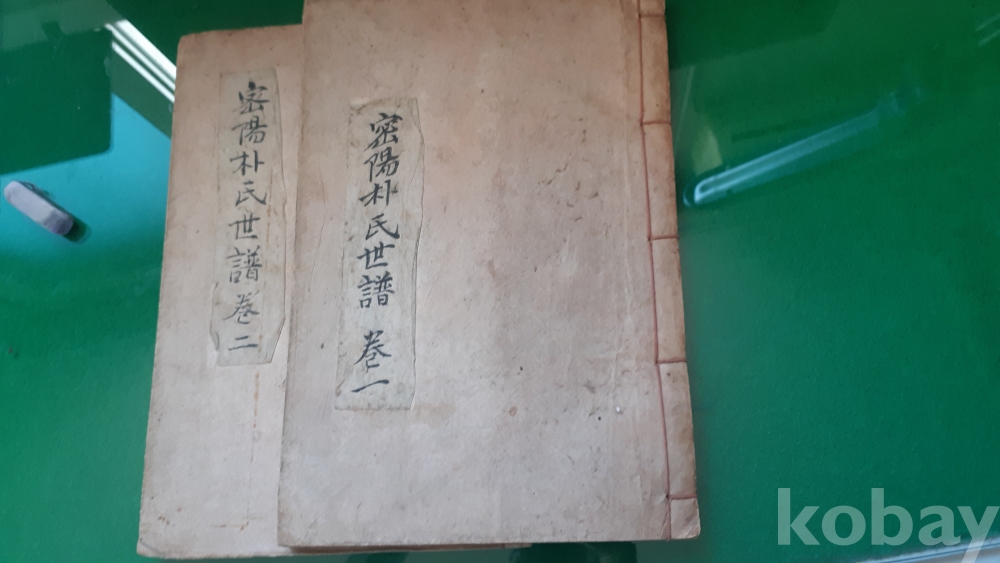 密陽朴氏世譜 卷一
密陽朴氏世譜 卷二
kobay